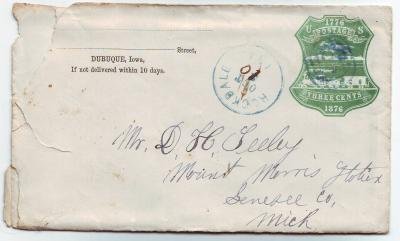 Street,
DUBUQUE, Iowa,
If not delivered within 10 days.
ROCKDALE
1776
U S
POSTAGE
THREE CENTS
1876
Mr. D H Seeley
Mount Morris Station
Genesee Co,
Mich